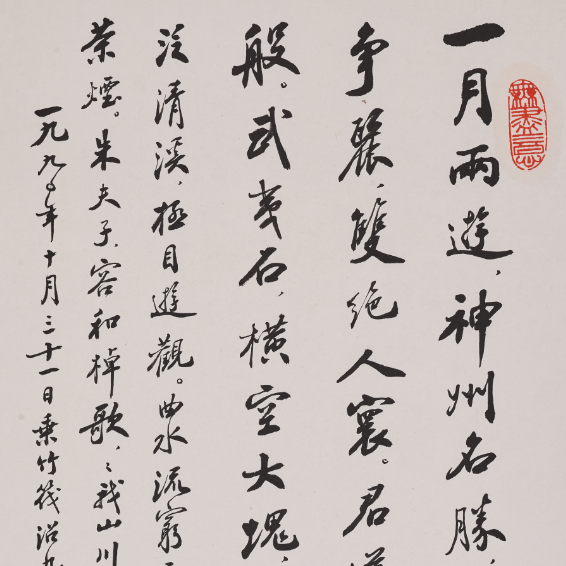 一月兩遊，神州名勝，
爭麗，雙絕人寰。君
般。武夷石，橫空大塊，
泛清溪，極目遊觀。曲水流窮
茶煙。朱夫子，容和棹歌，
一九九〇年十月三十一日乘竹筏沿九